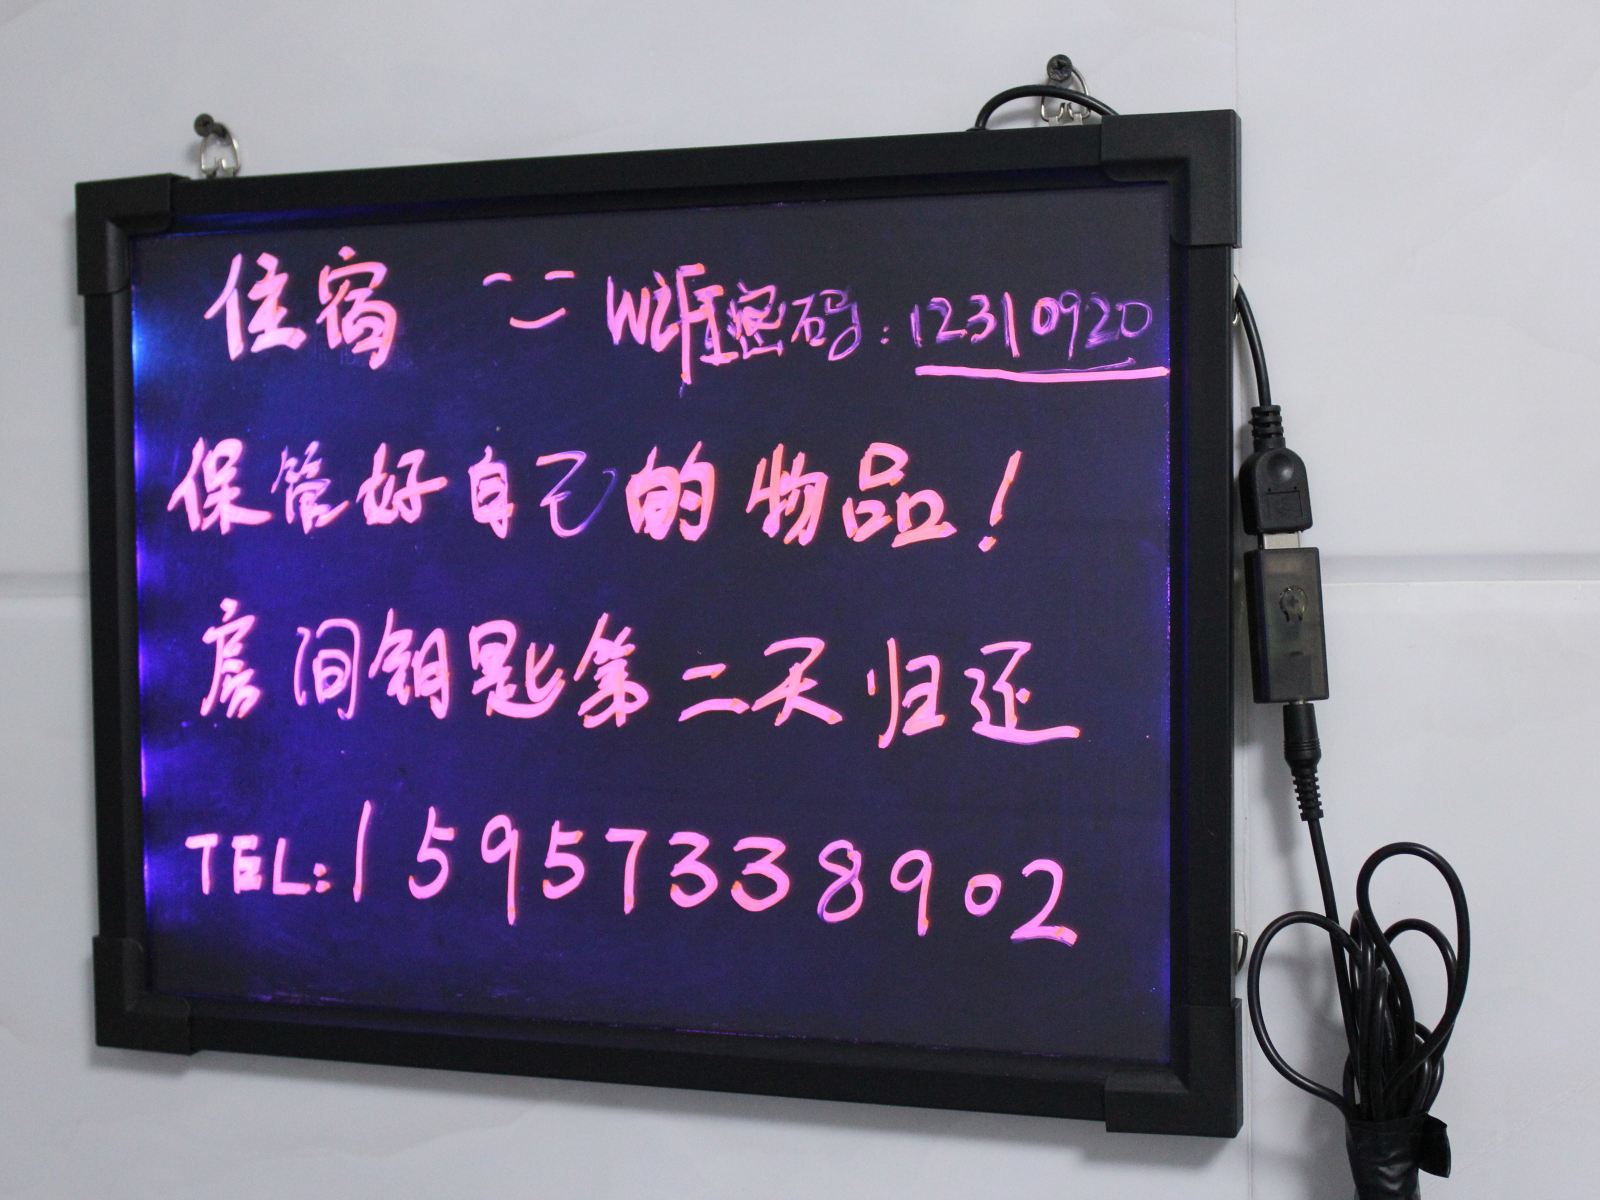 住宿 WiFi密码:12310920
保管好自己的物品!
房间钥匙第二天归还
TEL:15957338902